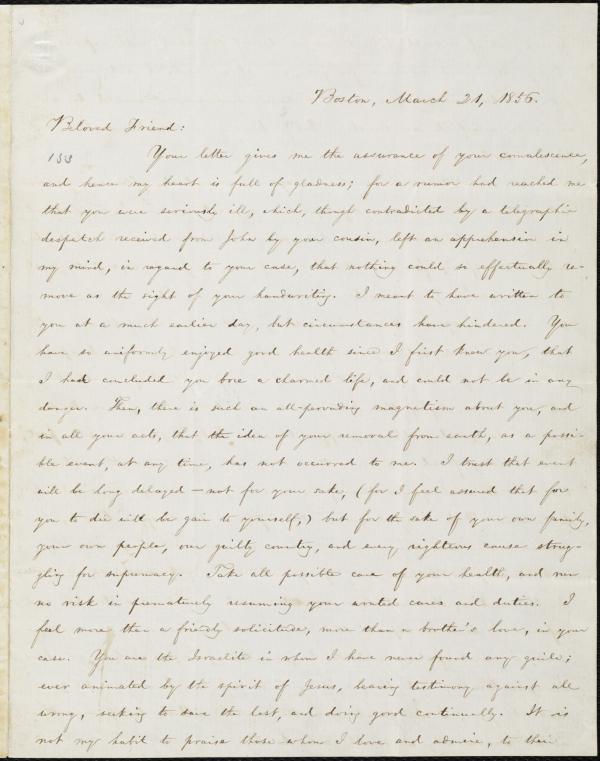 Boston, March 21, 1856.
Beloved Friend:
Your letter gives me the assurance of your convalescence,
and hence my heart is full of gladness; for a rumor had reached me
that you were seriously ill, which, though contradicted by a telegraphic
despatch received from John by your cousin, left an apprehension in
my mind, in regard to your case, that nothing could so effectually re-
move as the sight of your handwriting. I meant to have written to
you at a much earlier day, but circumstances have hindered. You
have so uniformly enjoyed good health since I first knew you, that
I had concluded you bore a charmed life, and could not be in any
danger. Then, there is such an all-pervading magnetism about you, and
in all your acts, that the idea of your removal from earth, as a possi-
ble event, at any time, has not occurred to me. I trust that event
will be long delayed — not for your sake, (for I feel assured that for
you to die will be gain to yourself,) but for the sake of your own family,
your own people, our guilty country, and every righteous cause strug-
gling for supremacy. Take all possible care of your health, and run
no risk in prematurely resuming your wonted cares and duties. I
feel more than a friendly solicitude, more than a brother's love, in your
case. You are the Israelite in whom I have never found any guile;
ever animated by the spirit of Jesus, bearing testimony against all
wrong, seeking to save the lost, and doing good continually. It is
not my habit to praise those whom I love and admire, to their